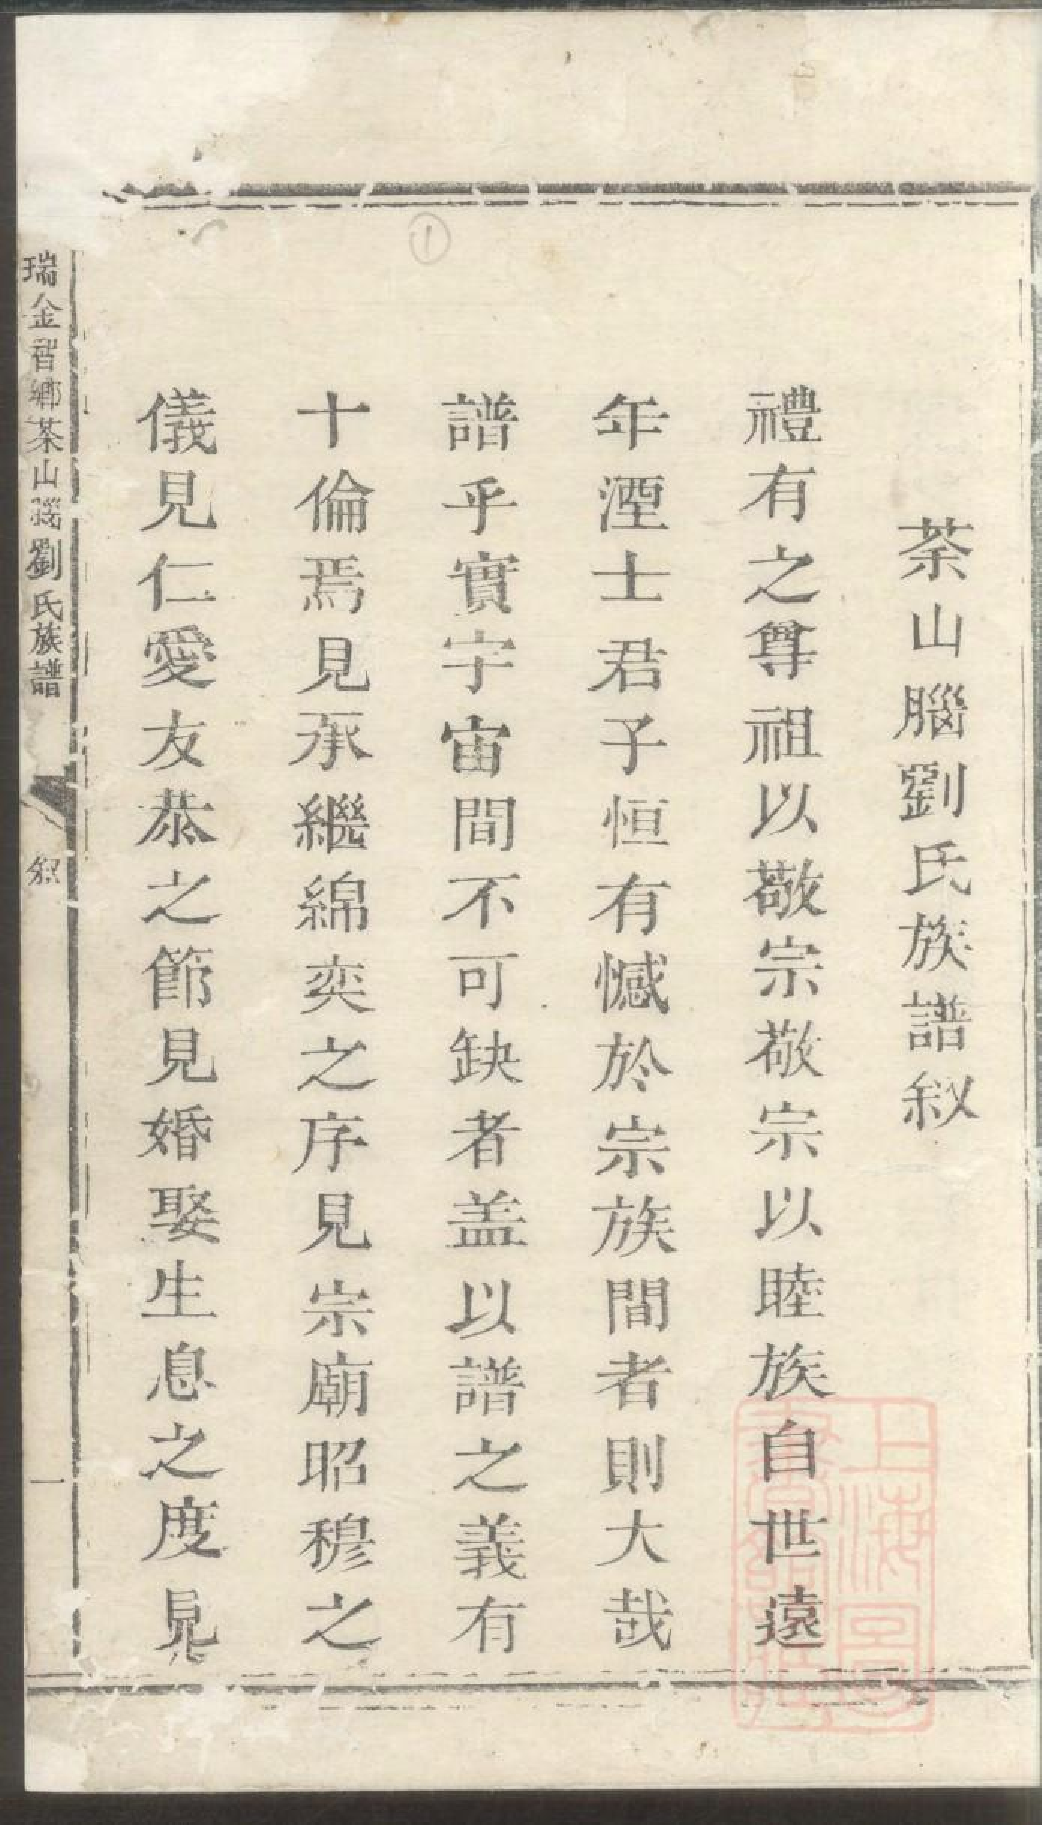 茶山腦劉氏族譜叙
禮有之尊祖以敬宗敬宗以睦族自世遠
年湮士君子恒有憾於宗族間者則大哉
譜乎實宇宙間不可缺者盖以譜之義有
十倫焉見承繼綿奕之序見宗廟昭穆之
儀見仁愛友恭之節見婚娶生息之度見
瑞金智鄉茶山腦劉氏族譜
叙
一
①
上海圖書館藏